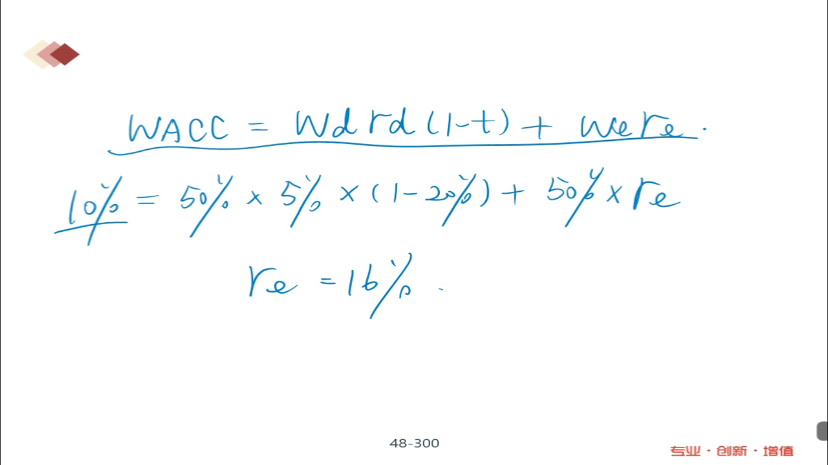 WACC = Wdrd(1-t) + Were.
10% = 50% × 5% × (1-20%) + 50% × re
re = 16%.
48-300
专业·创新·增值